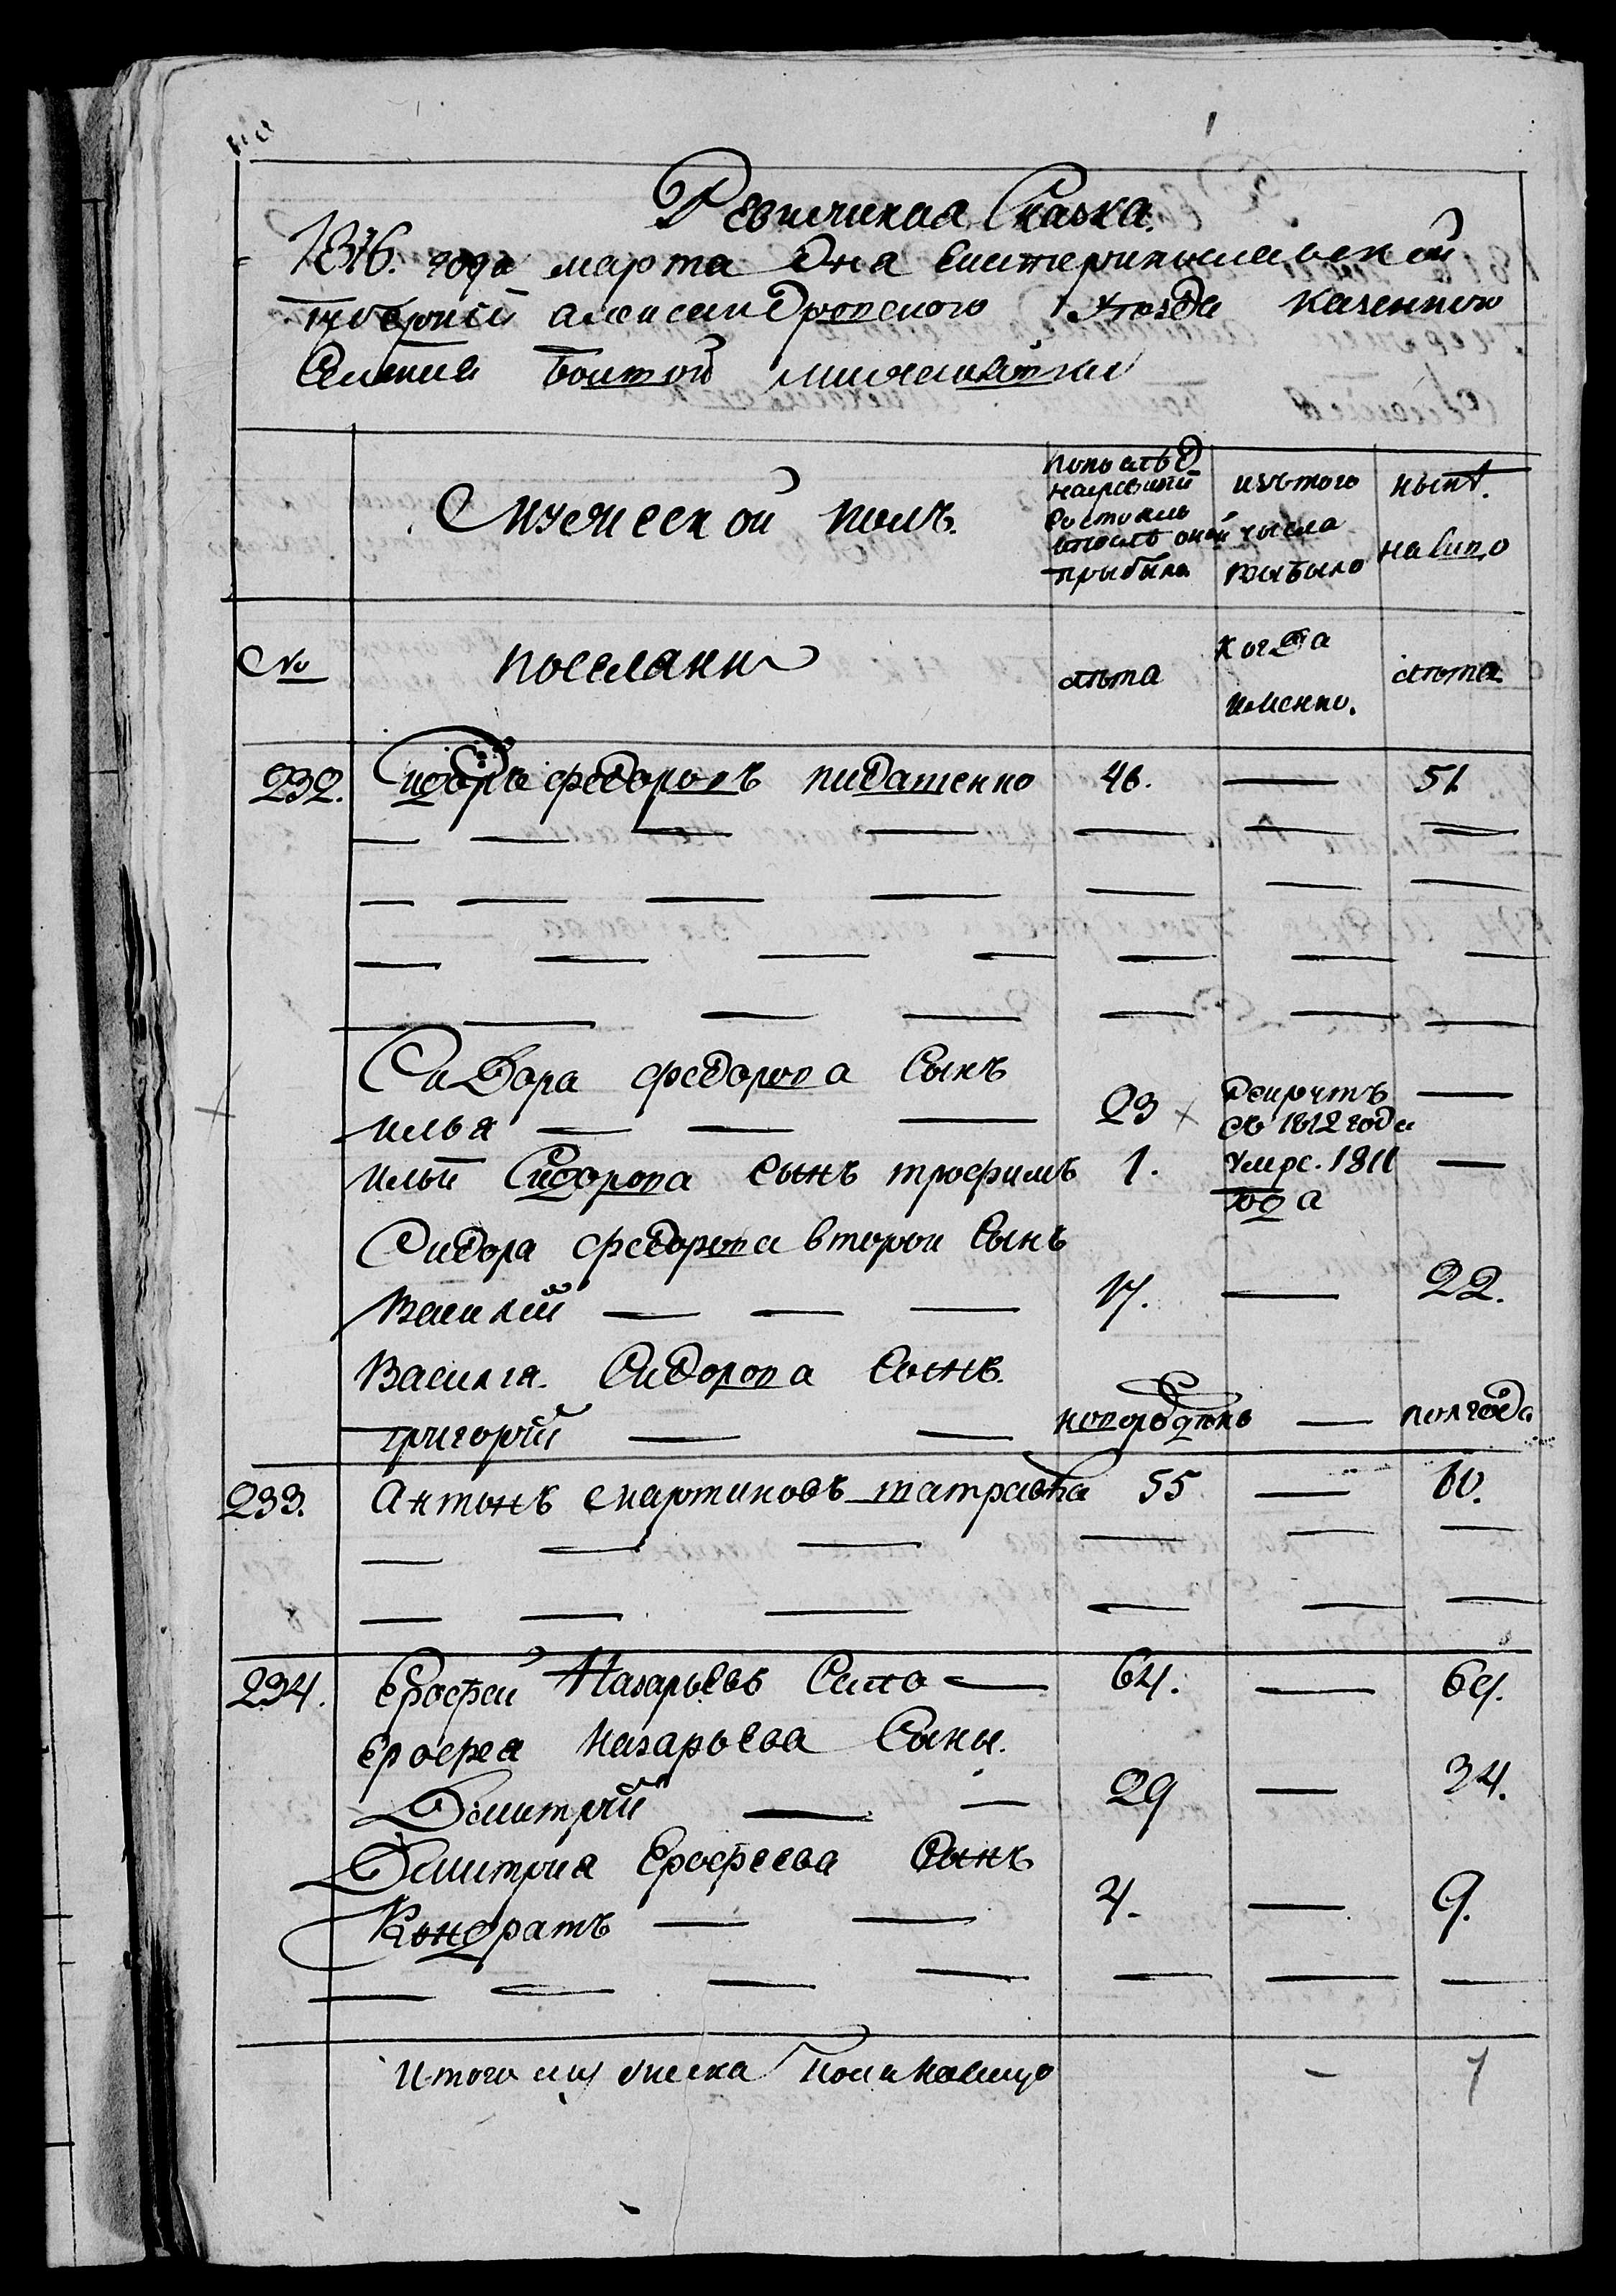 Ревижская Скаска.
1816. года марта дня Екатеринославской
губернии александровского уезда казенного
Селения Белой
Мужеской полъ.
По послед
ней ревизии
состояло
и после оной
прибыло
изътого
числа
выбыло
ныне.
налицо
№
поселяни
лѣта
когда
именно.
лѣта
232. Сидоръ федоровъ пидатенко 46. — 51
Сидора федорова Сынъ
илья — — — 23 × —
съ 1812 года
ильи Сидорова сынъ трофимъ 1. умре. 1811 —
года
Сидора федорова второи Сынъ
Василий — — — 17. — 22.
Василия Сидорова Сынъ.
григорий — — новорожденъ — полгода
233. Антонъ мартиновъ татравка 55 — 60.
234. Ерофей Назарьевъ — 64. — 69.
Ерофея Назарьева Сыны.
Дмитрий — — 29 — 34.
Дмитрия Ерофеева Сынъ
Кондратъ — — 4. — 9.
Итого мужеска пола налицо - 7